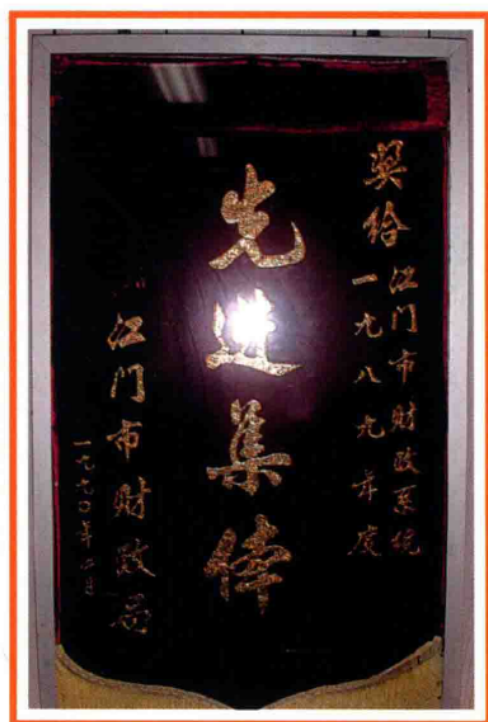 奖给
江门市财政系统
一九八九年度
先进集体
江门市财政局
一九九〇年二月